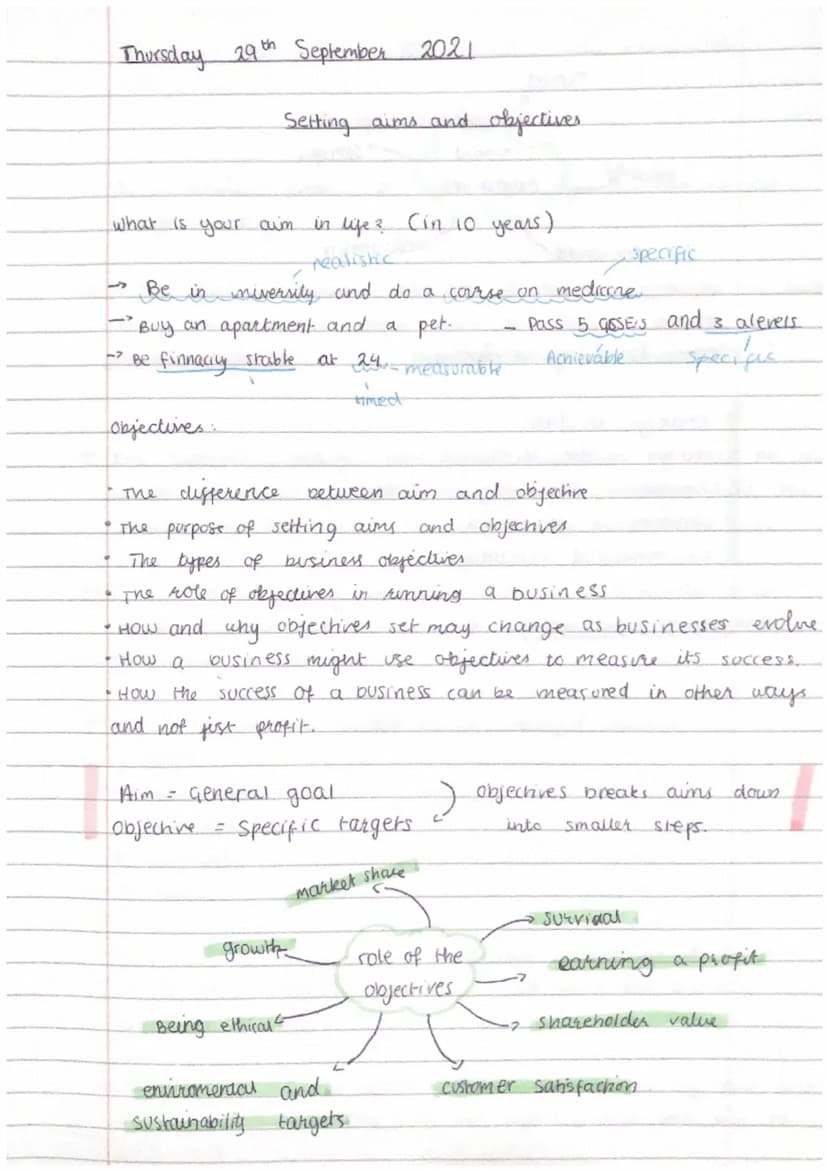 Thursday 29th September 2021
Setting aims and objectives
What is your aim in life? (in 10 years)
realistic specific
→ Be in university and do a course on medicine
→ Buy an apartment and a pet. - Pass 5 GCSE's and 3 alevels
→ Be finnacıy stable at 24 - measurable Achievable specific
timed
objectives:
• The difference between aim and objective
• The purpose of setting aims and objectives
• The types of business objectives
• The role of objectives in running a business
• How and why objectives set may change as businesses evolve
• How a business might use objectives to measure its success.
• How the success of a business can be measured in other ways
and not just profit.
Aim = General goal objectives breaks aims down
Objective = Specific targets into smaller steps.
market share
survival
growth
role of the
objectives
earning a profit
Being ethical
shareholder value
enviromental and
sustainability targets
customer satisfaction